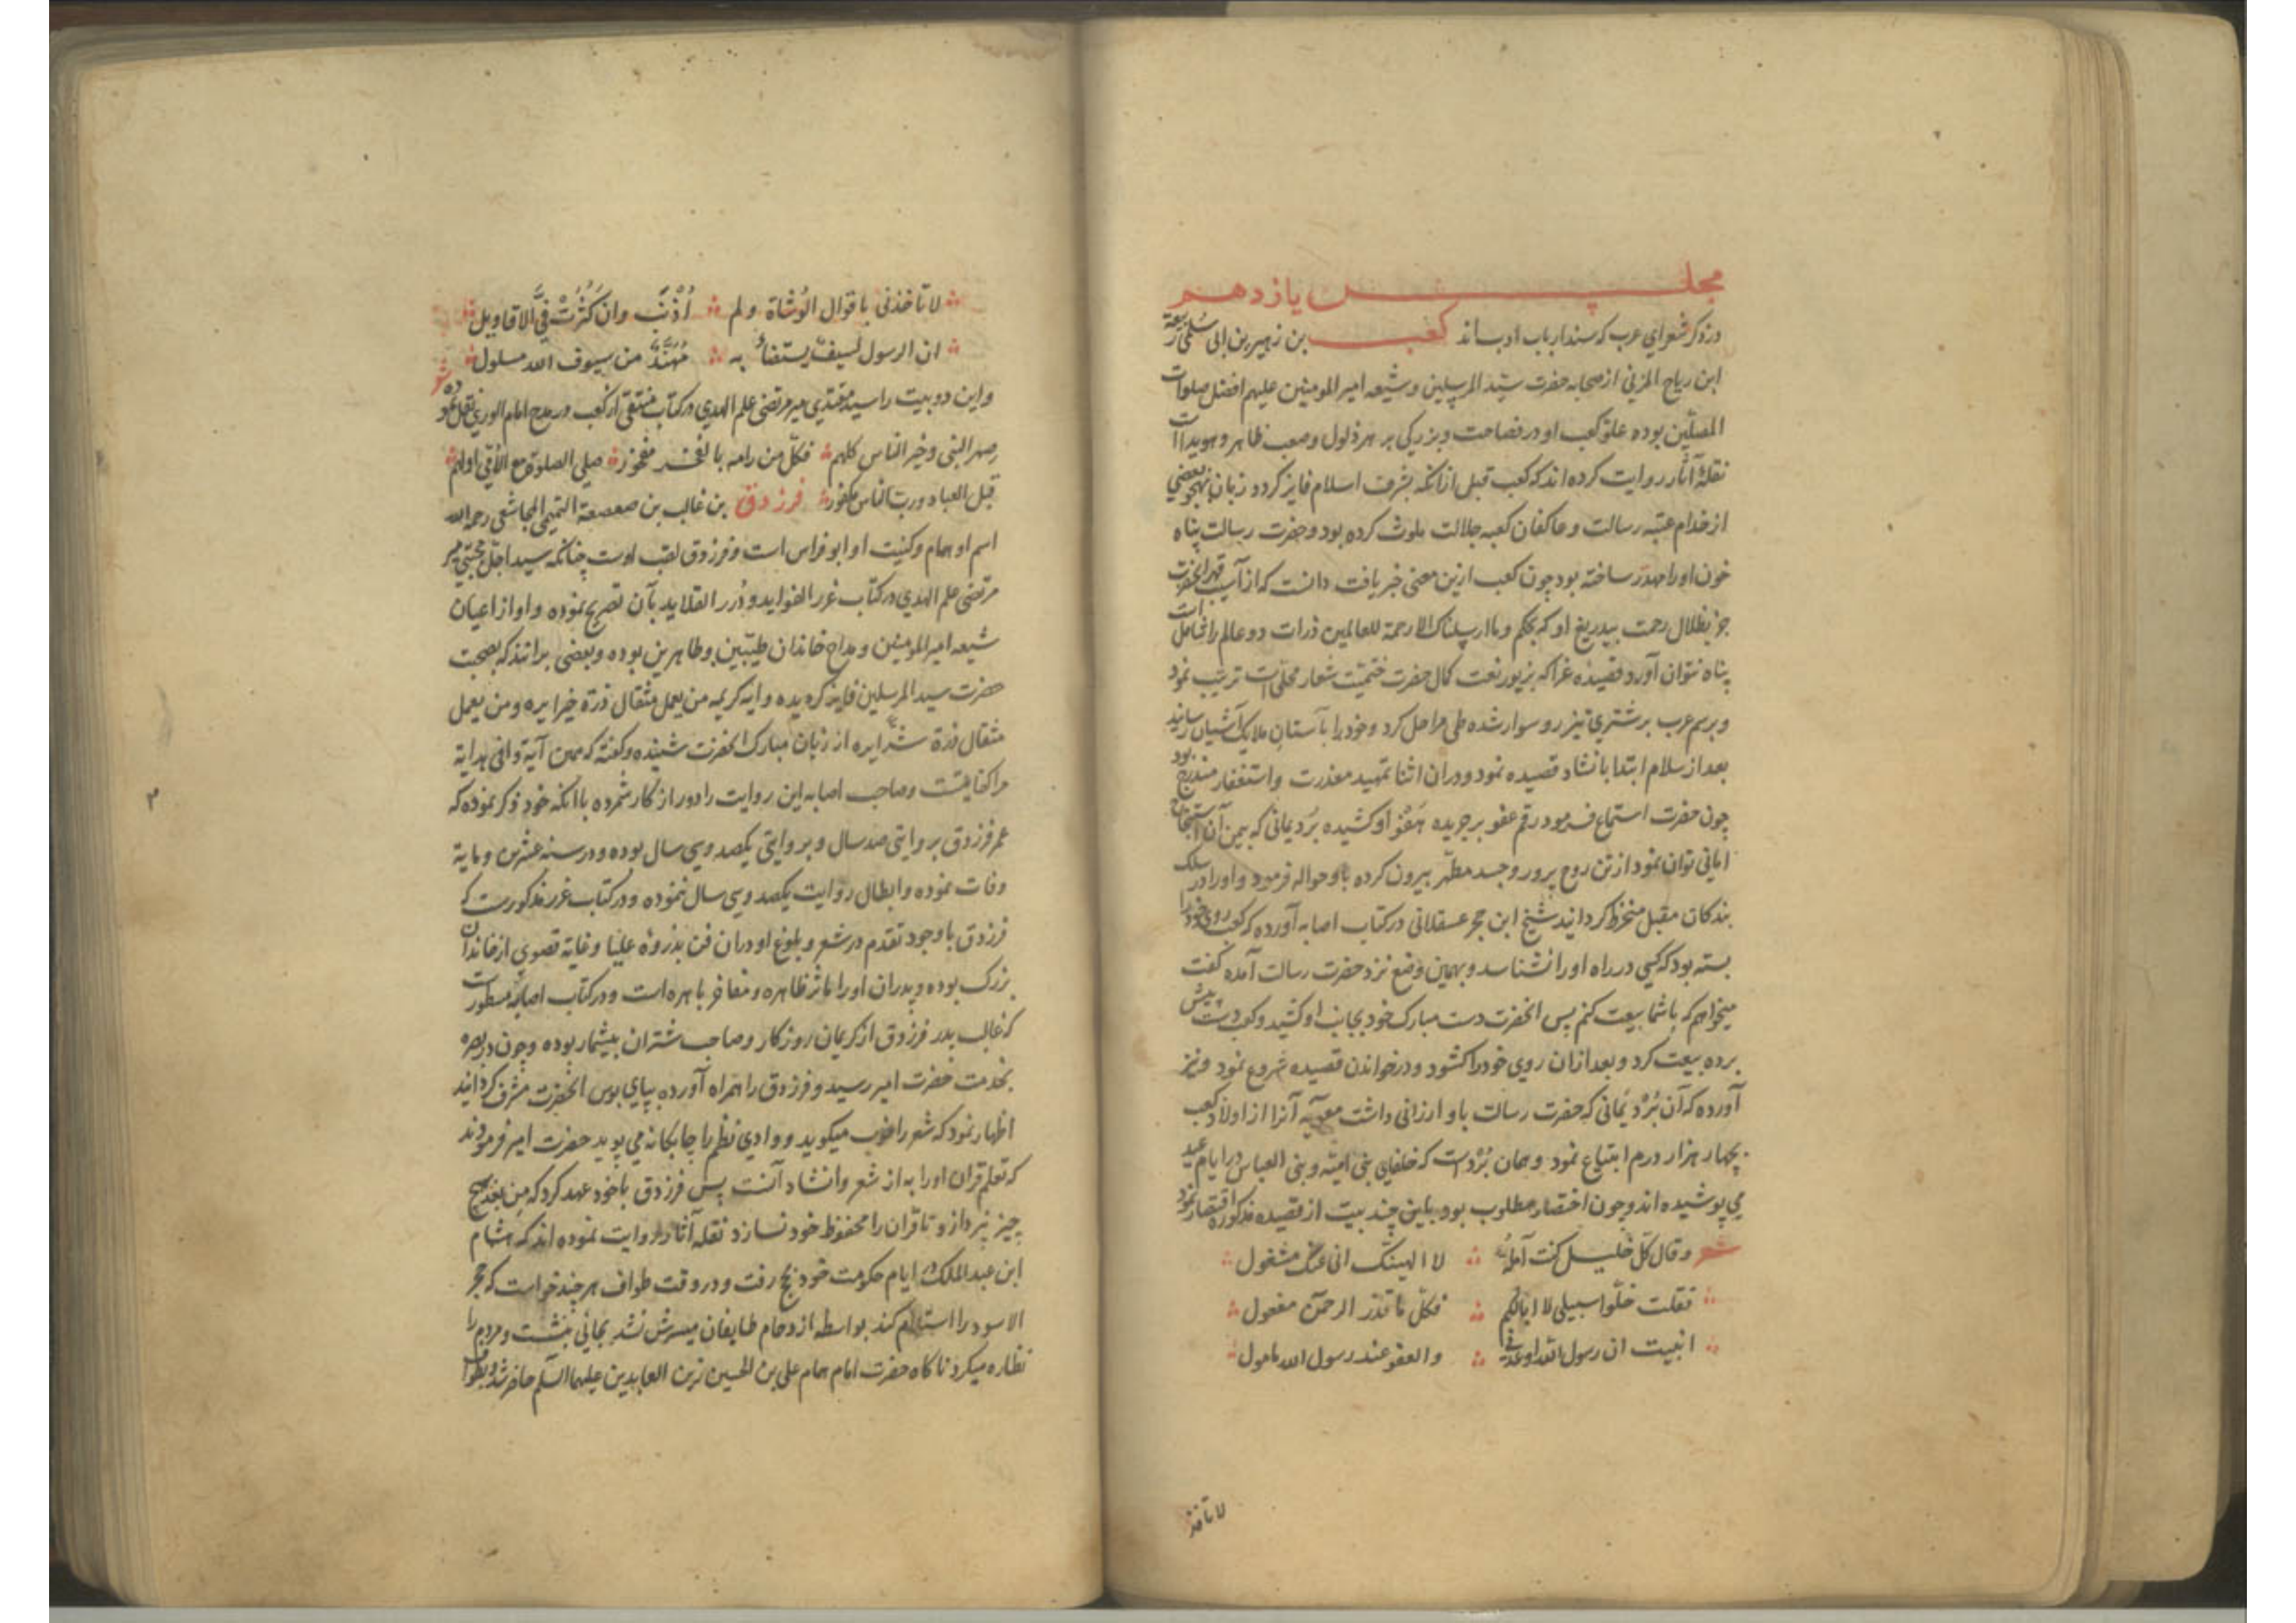 مجلس یازدهم
در ذکر شعرای عرب که سند ارباب ادب‌اند کعب بن زهیر بن ابی سُلمی ربیعة
ابن ریاح المزنی از صحابه حضرت سیّد المرسلین و شیعه امیر المومنین علیهم افضل صلوات
المصلّین بوده علوّ کعب او در فصاحت و بزرکی بر هر ذلول و صعب ظاهر و هویدا است
نقلهٔ آثار روایت کرده اند که کعب قبل ازانکه بشرف اسلام فایز کردد زبان بهجو بعضی
از خدام عتبه رسالت و عاکفان کعبه جلالت ملوث کرده بود و حضرت رسالت پناه
خون او را مهدر ساخته بود چون کعب ازین معنی خبر یافت دانست که از آسیب قهر آنحضرت
جز بظلال رحمت بیدریغ او که بحکم وما ارسلناک الا رحمة للعالمین ذرات دو عالم را شامل است
پناه نتوان آورد قصیده غرا که بزیور نعت کمال حضرت ختمیت شعار محلی است ترتیب نمود
و برسم عرب بر شتری تیزرو سوار شده طی مراحل کرد و خود را بآستان ملایک آشیان رسانید
بعد از سلام ابتدا بانشاد قصیده نمود و دران اثنا تمهید معذرت و استغفار مندرج بود
چون حضرت استماع فرمود رقم عفو بر جریده هفوْ او کشیده بُرد یمانی که بیمن آن استنجاح
امانی توان نمود از تن روح پرور و جسد مطهّر بیرون کرده باو حواله فرمود و او را در سلک
بندکان مقبل منخرط کردانید شیخ ابن حجر عسقلانی در کتاب اصابه آورده که کعب روی خود را
بسته بود که کسی در راه او را نشناسد و بهمین وضع نزد حضرت رسالت آمده کفت
میخواهم که باشما بیعت کنم پس انحضرت دست مبارک خود بجانب او کشید و کعب دست پیش
برده بیعت کرد و بعد ازان روی خود را کشود و در خواندن قصیده شروع نمود و نیز
آورده که آن بُرْد یَمانی که حضرت رسالت باو ارزانی داشت معویه آنرا از اولاد کعب
بچهار هزار درم ابتیاع نمود و همان بُرد است که خلفای بنی امیّه و بنی العباس در ایام عید
می پوشیده اند و چون اختصار مطلوب بود باین چند بیت از قصیده مذکوره اقتصار نمود
شعر وقال کلّ خلیل کنت آمله لا الهینک انی عنک مشغول
فقلت خلّوا سبیلی لا ابا لکم فکلّ ما قدر الرحمن مفعول
انبیت ان رسول الله اوعدنی والعفو عند رسول الله مامول
لا تاخذ
لا تاخذنی باقوال الوُشاة ولم اُذْنِبْ وان کَثُرَتْ فیَّ الاقاویل
ان الرسول لسیفٌ یستضاءُ به مُهَنَّدٌ من سیوف الله مسلول
واین دو بیت را سید مقتدی میر مرتضی علم الهدی در کتاب منتقی از کعب در مدح امام الوری نقل نموده شعر
صهر النبی وخیر الناس کلهم فکلّ من رامه بالفخر مفخور صلی الصلوة مع الاُمّی اولهم
قبل العباد وربّ الناس مکفور فرزدق بن غالب بن صعصعة التمیمی المجاشعی رحمه الله
اسم او همام و کنیت او ابو فراس است و فرزدق لقب اوست چنانکه سید اجلّ مجتبی میر
مرتضی علم الهدی در کتاب غرر الفواید و دُرر القلاید بآن تصریح نموده و او از اعیان
شیعه امیر المومنین و مداح خاندان طیّبین و طاهرین بوده و بعضی برانند که بصحبت
حضرت سید المرسلین فایز کردیده و ایه کریمه من یعمل مثقال ذرة خیرا یره ومن یعمل
مثقال ذرة شرّا یره از زبان مبارک انحضرت شنیده و کفته که همین آیة وافی هدایة
مرا کفایتست و صاحب اصابه این روایت را دور از کار شمرده باانکه خود ذکر نموده که
عمر فرزدق بروایتی صد سال و بروایتی یکصد و سی سال بوده و در سنه عشرین و مایة
وفات نموده و ابطال روایت یکصد و سی سال ننموده و در کتاب غرر مذکورست که
فرزدق با وجود تقدم در شعر و بلوغ او دران فن بذروهٔ علیا و غایة قصوی از خاندان
بزرک بوده و پدران او را ماثر ظاهره و مفاخر باهره است و در کتاب اصابه مسطور است
که غالب پدر فرزدق از کریمان روزکار و صاحب شتران بیشمار بوده و چون در بصره
بخدمت حضرت امیر رسید و فرزدق را همراه آورده بپای بوس انحضرت مشرف کردانید
اظهار نمود که شعر را خوب میکوید و وادی نظم را چابکانه می پوید حضرت امیر فرمودند
که تعلم قران او را به از شعر و انشاد آنست پس فرزدق باخود عهد کرد که من بعد بهیچ
چیز نپردازد تا قران را محفوظ خود نسازد نقله آثار روایت نموده اند که هشام
ابن عبد الملک در ایام حکومت خود بحج رفت و در وقت طواف هر چند خواست که حجر
الاسود را استلام کند بواسطه ازدحام طایفان میسرش نشد بجائی بنشست و مردم را
نظاره میکرد ناکاه حضرت امام همام علی بن الحسین زین العابدین علیهما السلم حاضر شد و بطواف